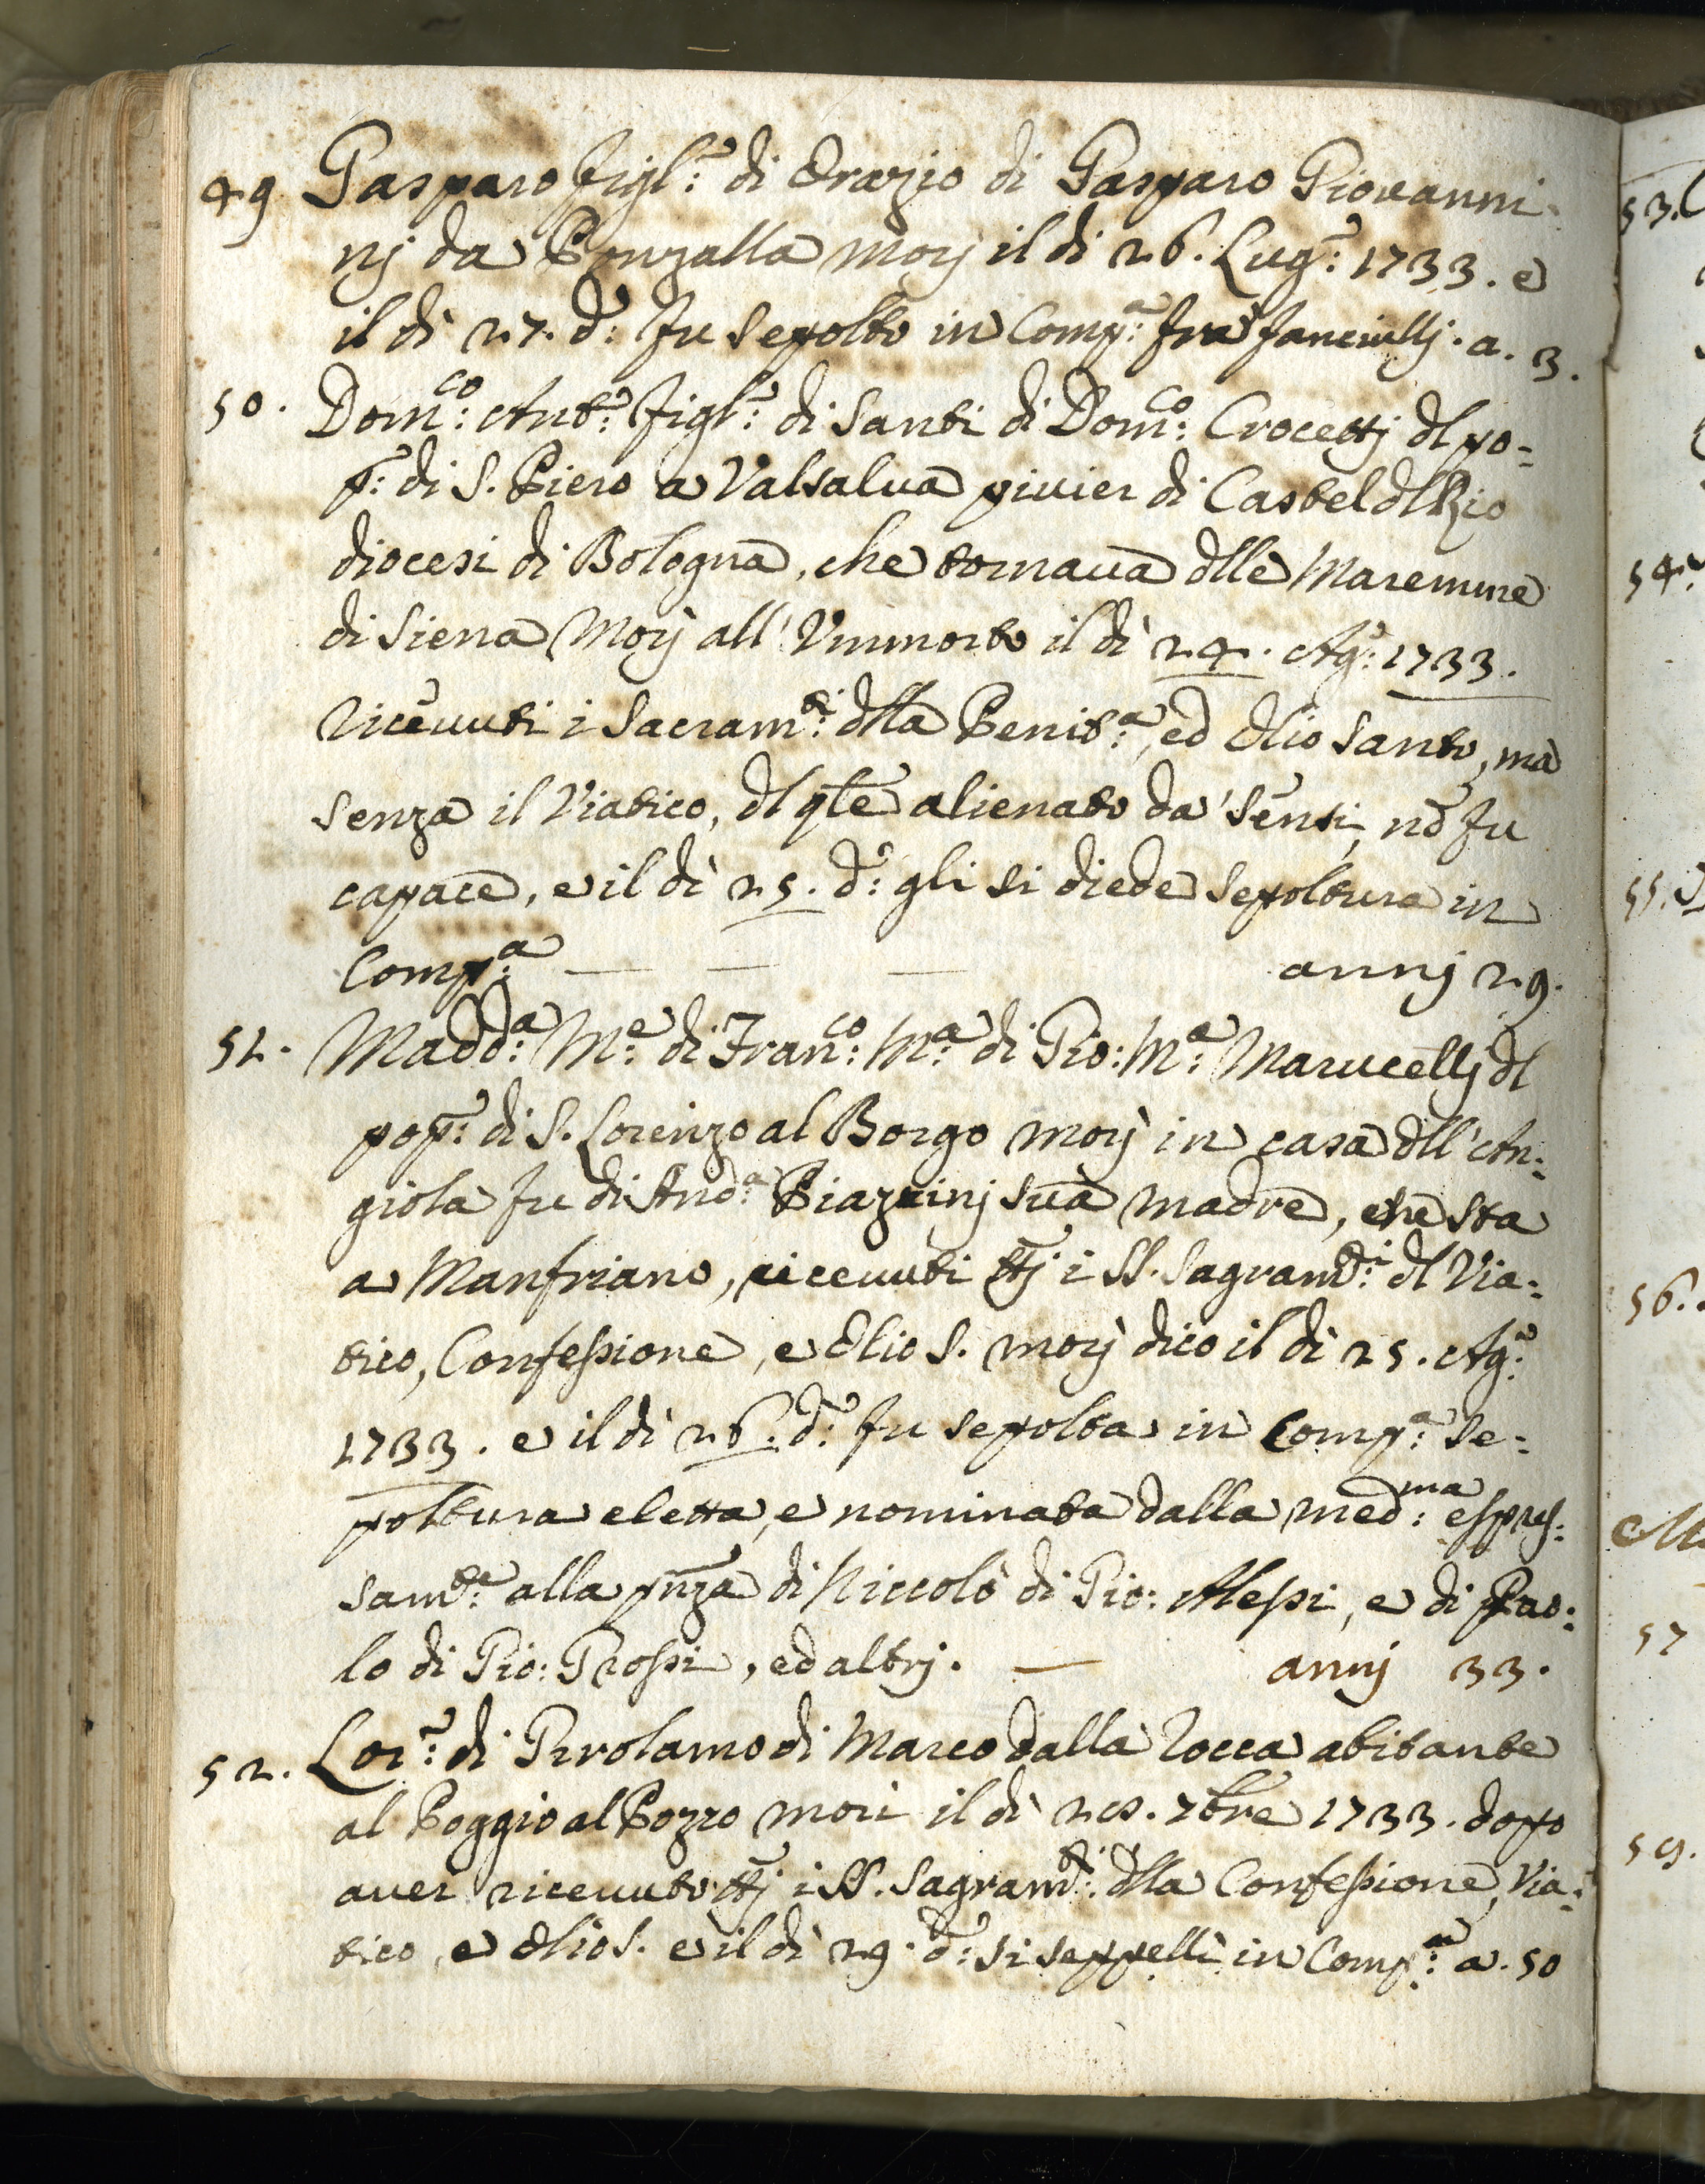 49 Gasparo figl.º di Orazio di Gasparo Giovanni
nj da Ronzalla morj il di 26. Lug.º 1733. e
il dì 27. d.º fu sepolto in Comp.ª fra fanciullj. a. 3.
50. Dom.co Ant.º figl.º di Santi di Dom.co Crocettj dl po-
p.º di S. Piero a Valsalva pivier di Castel dl Rio
diocesi di Bologna, che tornava dlle Maremme
di Siena Morj all' Ummorto il dì 24. Ag.º 1733.
ricevuti i Sacram.ti dlla Penit.ª, ed Olio Santo, ma
senza il Viatico, dl qle alienato da' sensi, nō fu
capace, e il dì 25. d.º gli si diede sepoltura in
Comp.ª — — — annj 29.
51. Madd.ª M.e di Fran.co M.ª di Gio: M.ª Marucellj dl
pop.º di S. Lorenzo al Borgo morj in casa dll' An-
giola fu di And.ª Piazzinj sua madre, che sta
a Manfriano, ricevuti ttj i SS. Sagram.ti dl Via-
tico, Confessione, e Olio S. morj dico il dì 25. Ag.º
1733. e il dì 26. d.º fu sepolta in Comp.ª Se-
poltura eletta, e nominata dalla med.ma espres-
sam.te alla pnza di Niccolò di Gio: Alessi, e di Pao-
lo di Gio: Grossi, ed altrj. — annj 33.
52. Lor.º di Girolamo di Marco dalla Rocca abitante
al Poggio al Pozzo mori il dì 28. 7bre 1733. dopo
aver ricevuto ttj i SS. Sagram.ti dlla Confessione, Via-
tico, e Olio S. e il dì 29. d.º si seppellì in Comp.ª a. 50
53.
54.
55.
56.
57
59.